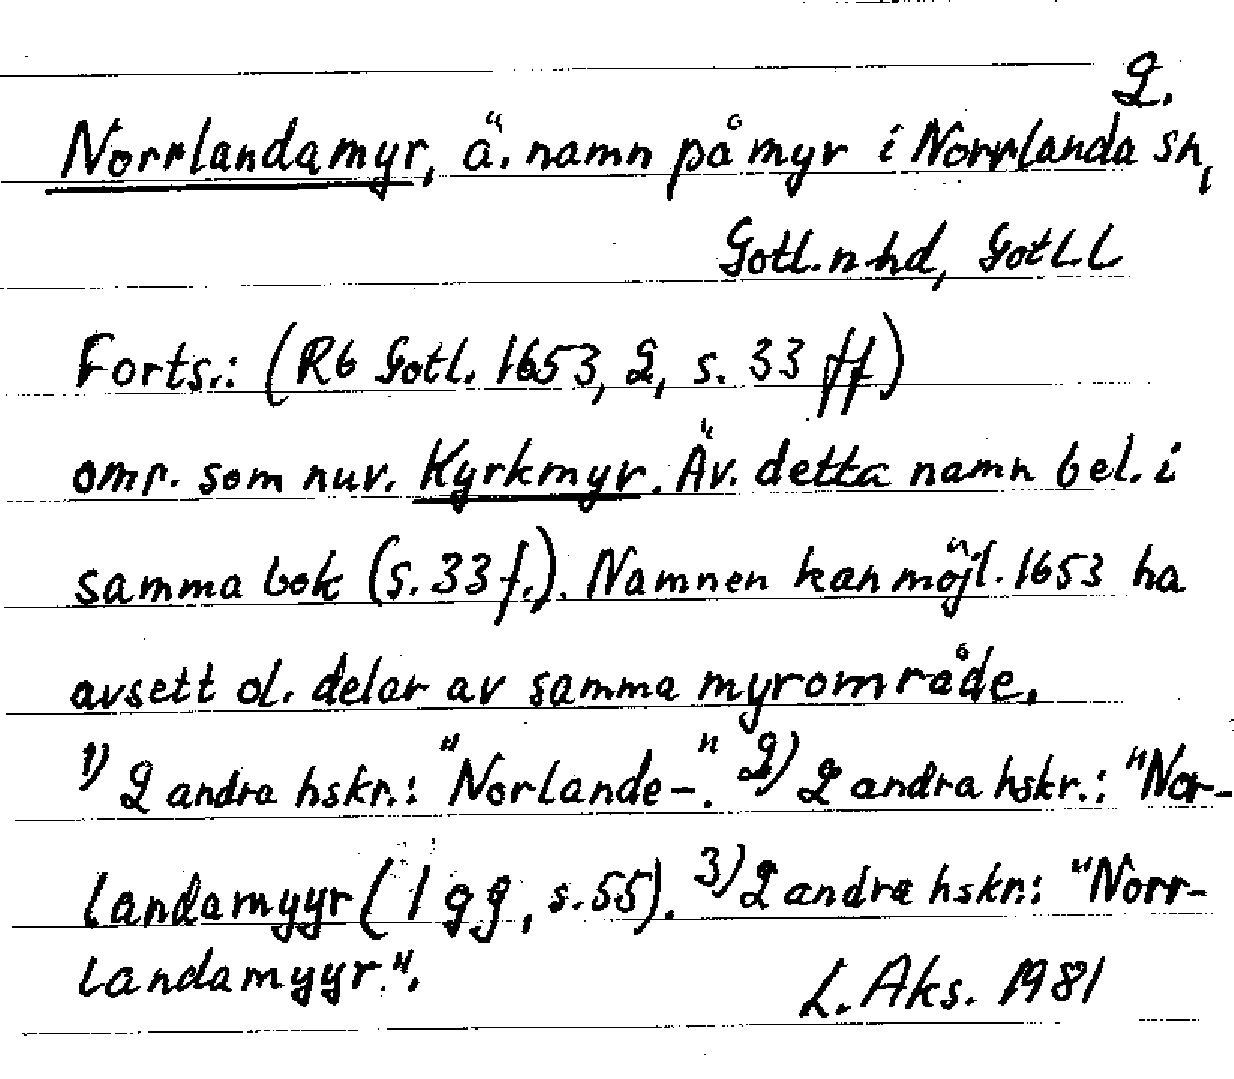 2.
Norrlandamyr, ä. namn på myr i Norrlanda sn,
Gotl. n hd, Gotl. l
Forts.: (Rb Gotl. 1653, 2, s. 33 ff)
omr. som nuv. Kyrkmyr. Äv. detta namn bel. i
samma bok (s. 33 f.). Namnen kan möjl. 1653 ha
avsett ol. delar av samma myrområde.
1) 2 andra hskr.: "Norlande-". 2) 2 andra hskr.: "Nor-
landamyyr (1 gg, s. 55). 3) 2 andra hskr.: "Norr-
landamyyr.".
L. Aks. 1981